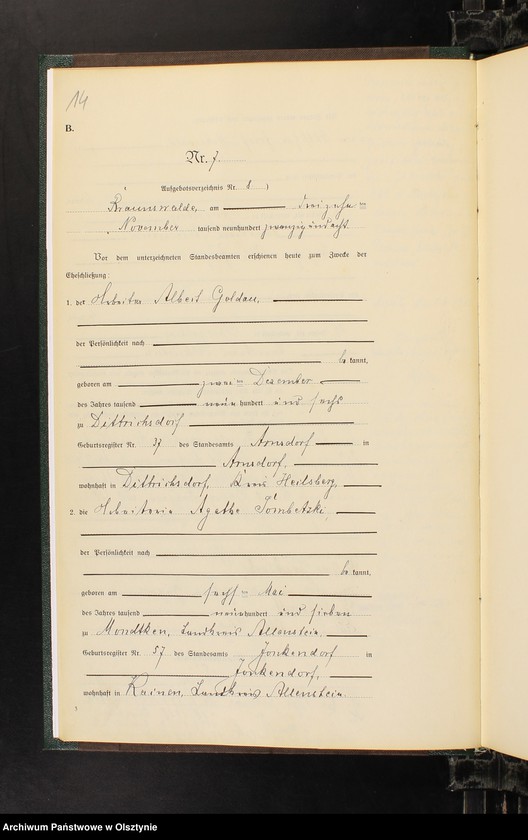 14
B.
Nr. 7.
Aufgebotsverzeichnis Nr. 8 )
Braunswalde, am dreizehn ten
November tausend neunhundert zwanzig und acht
Vor dem unterzeichneten Standesbeamten erschienen heute zum Zwecke der
Eheschließung:
1. der Arbeiter Albert Goldau,
der Persönlichkeit nach
be kannt,
geboren am zwei ten Dezember
des Jahres tausend neun hundert und sechs
zu Dittrichsdorf
Geburtsregister Nr. 37 des Standesamts Arnsdorf in
Arnsdorf,
wohnhaft in Dittrichsdorf, Kreis Heilsberg,
2. die Arbeiterin Agathe Tombetzki,
der Persönlichkeit nach
be kannt,
geboren am sechs ten Mai
des Jahres tausend neunhundert und sieben
zu Mondtken, Landkreis Allenstein
Geburtsregister Nr. 57 des Standesamts Jonkendorf in
Jonkendorf,
wohnhaft in Kainen, Landkreis Allenstein.
Archiwum Państwowe w Olsztynie